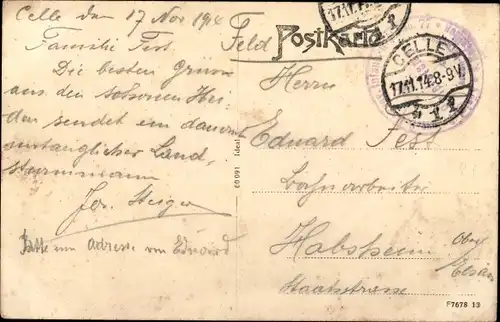 Celle den 17 Nov 1914
Familie Fest
Die besten Grüsse
aus den schönen Hei
den sendet ein dauernd
untauglicher Land
sturmmann
Jos. Steiger
Bitte um Adresse von Eduard
Feld Postkarte
CELLE
17.11.14.8-9V.
Herrn
Eduard Fest
Bahnarbeiter
Habsheim Ober
Elsass
Staatsstrasse
F7678 13